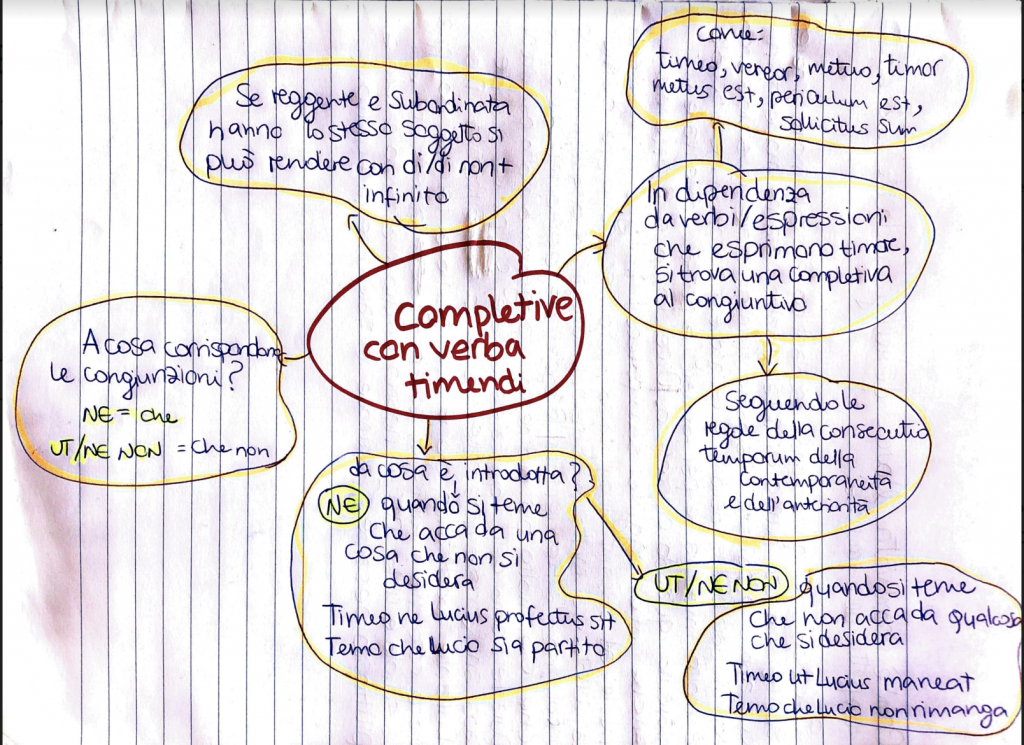 come:
timeo, vereor, metuo, timor
metus est, periculum est,
sollicitus sum
Se reggente e subordinata
hanno lo stesso soggetto si
può rendere con di/di non +
infinito
In dipendenza
da verbi/espressioni
che esprimano timore,
si trova una completiva
al congiuntivo
completive
con verba
timendi
A cosa corrispondono
le congiunzioni?
NE = che
UT/NE NON = che non
Seguendo le
regole della consecutio
temporum della
contemporaneità
e dell'anteriorità
da cosa è introdotta?
NE quando si teme
che accada una
cosa che non si
desidera
Timeo ne Lucius profectus sit
Temo che Lucio sia partito
UT/NE NON quando si teme
che non accada qualcosa
che si desidera
Timeo ut Lucius maneat
Temo che Lucio non rimanga